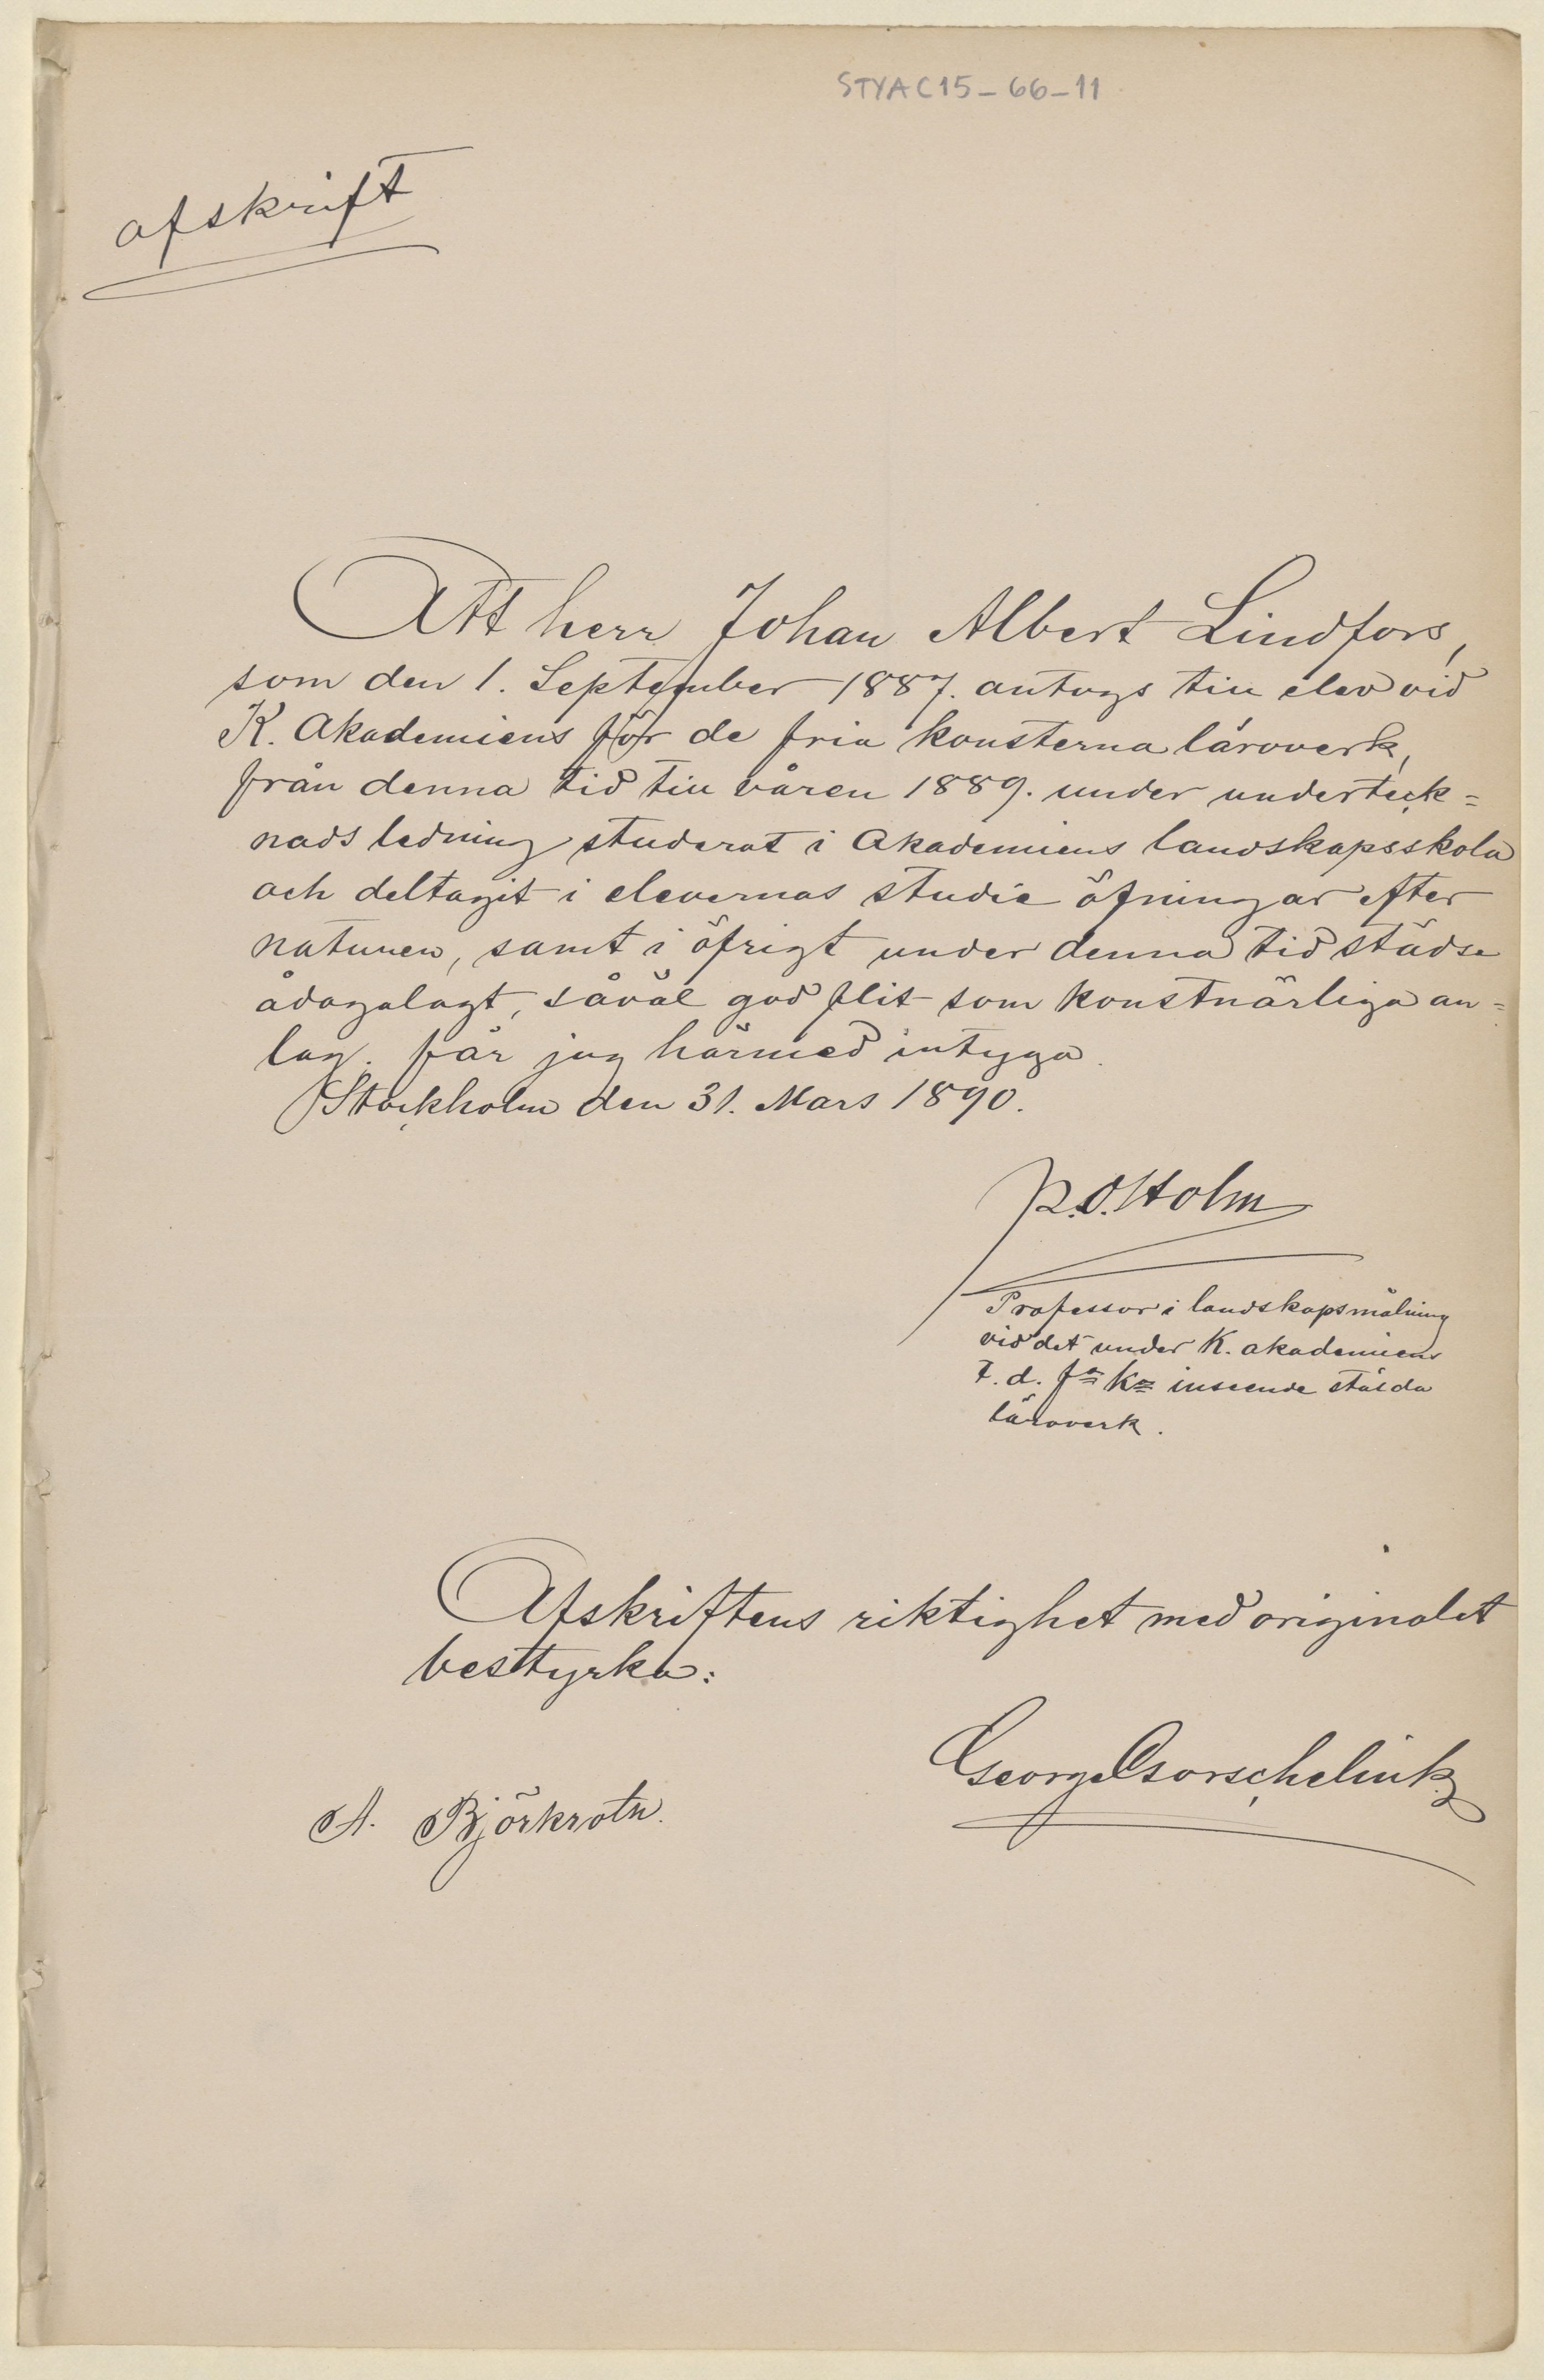 STYAC15-66-11
afskrift
Att herr Johan Albert Lindfors,
som den 1. September 1887. antogs till elev vid
K. Akademiens för de fria konsterna läroverk,
från denna tid till våren 1889. under underteck=
nads ledning studerat i Akademiens landskapsskola
och deltagit i elevernas studie öfningar efter
naturen, samt i öfrigt under denna tid städse
ådagalagt, såväl god flit som konstnärliga an=
lag. får jag härmed intyga.
Stockholm den 31. Mars 1890.
P.D. Holm
Professor i landskapsmålning
vid det under K. akademiens
f. d. fa kr inseende stälda
läroverk.
Afskriftens riktighet med originalet
bestyrka:
George
A. Björkroth.